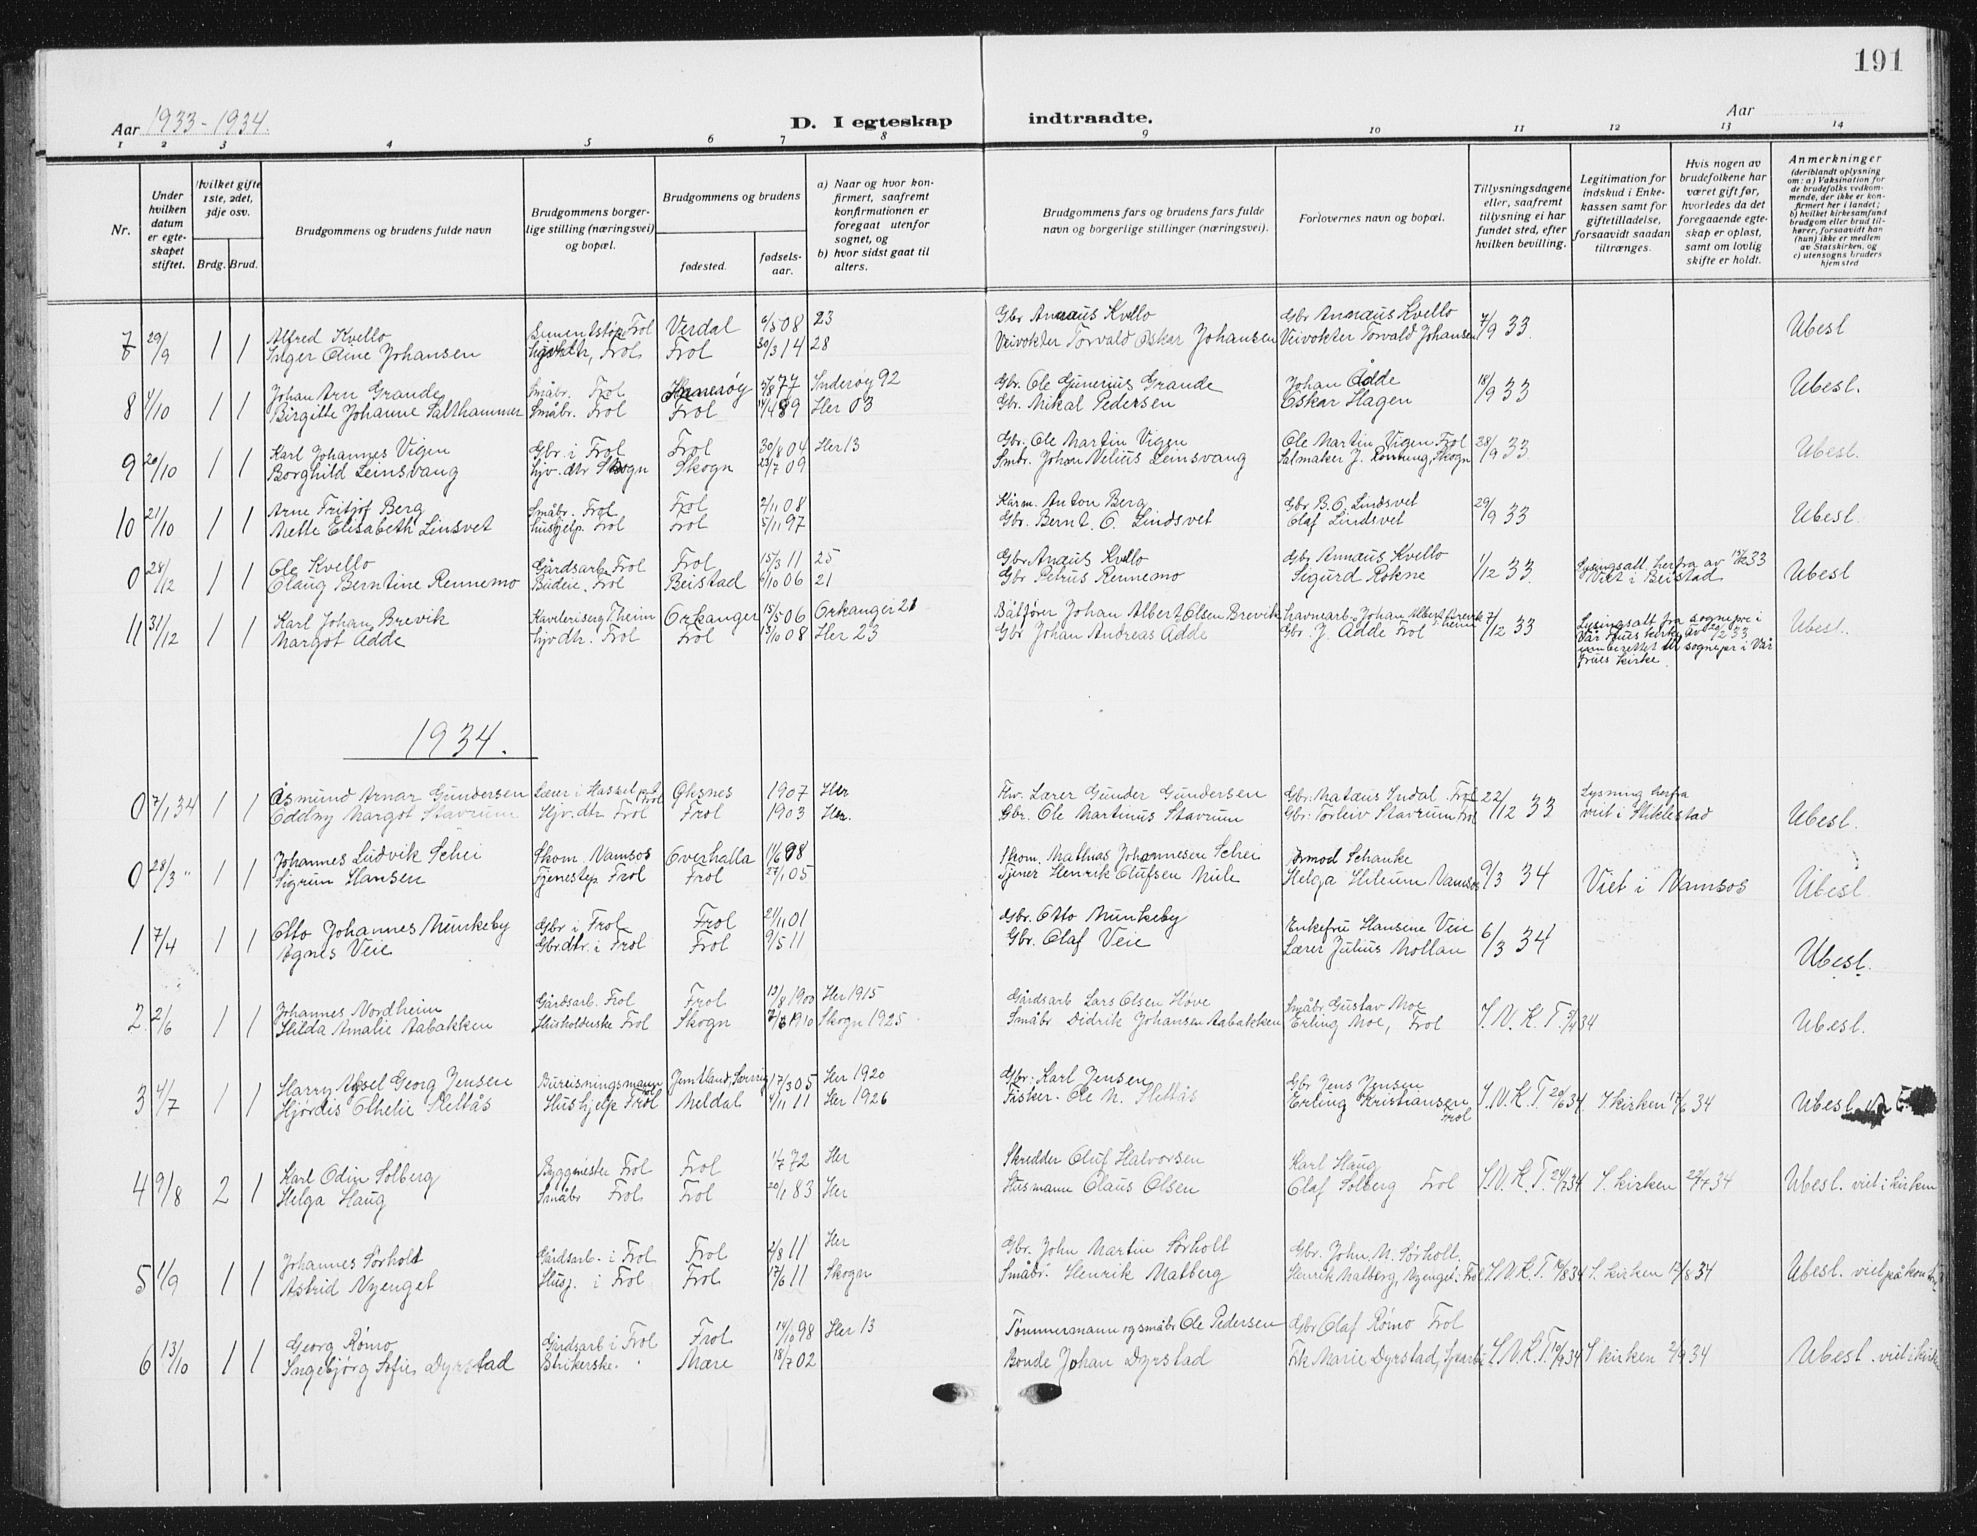 191
Aar 1933-1934.
D. I egteskap indtraadte.
Aar
1 2 3 4 5 6 7 8 9 10 11 12 13 14
Nr.
Under hvilken datum er egteskapet stiftet.
Hvilket gifte 1ste, 2det, 3dje osv.
Brdg. Brud.
Brudgommens og brudens fulde navn
Brudgommens borgerlige stilling (næringsvei) og bopæl.
Brudgommens og brudens
fødested.
fødselsaar.
a) Naar og hvor konfirmert, saafremt konfirmationen er foregaat utenfor sognet, og
b) hvor sidst gaat til alters.
Brudgommens fars og brudens fars fulde navn og borgerlige stillinger (næringsvei).
Forlovernes navn og bopæl.
Tillysningsdagene eller, saafremt tillysning ei har fundet sted, efter hvilken bevilling.
Legitimation for indskud i Enkekassen samt for giftetilladelse, forsaavidt saadan tiltrænges.
Hvis nogen av brudefolkene har været gift før, hvorledes da det foregaaende egteskap er opløst, samt om lovlig skifte er holdt.
Anmerkninger (deriblandt oplysning om: a) Vaksination for de brudefolks vedkommende, der ikke er konfirmert her i landet; b) hvilket kirkesamfund brudgom eller brud tilhører, forsaavidt han (hun) ikke er medlem av Statskirken, og c) utensogns bruders hjemsted
7 29/9 1 1 Alfred Kvello Frol Verdal 6/5 08 23 Gbr Annaus Kvello Gbr Annaus Kvello 7/9 33 Ubesl
Inger Oline Johansen Frol Frol 30/3 14 28 Veivokter Torvald Oskar Johansen Veivokter Torvald Johansen
8 4/10 1 1 Johan Arn Grande Småbr. Frol 77 Inderøy 92 Gbr. Ole Gunerius Grande Johan Adde 18/9 33 Ubesl.
Birgitte Johanne Salthammer Småbr. Frol Frol 14/4 89 Her 03 Gbr. Mikal Pedersen Oskar Hagen
9 20/10 1 1 Karl Johannes Vigen Gbr. i Frol Frol 30/8 04 Her 13 Gbr. Ole Martin Vigen Ole Martin Vigen Frol 28/9 33 Ubesl.
Borghild Leinsvang Hjv. dtr Skogn Skogn 23/7 09 Smbr. Johan Nelius Leinsvang Salmaker J. Skogn
10 21/10 1 1 Arne Fritjof Berg Småbr. Frol Frol 2/11 08 Anton Berg Gbr B. O. Lindsvet 29/9 33 Ubesl.
Mette Elisabeth Linsvet Hushjelp Frol Frol 5/11 97 Gbr. Bernt O. Lindsvet Olaf Lindsvet
0 28/12 1 1 Ole Kvello Gårdsarb. Frol Frol 15/3 11 25 Gbr Anaus Kvello Gbr Annaus Kvello 1/12 33 Lysingsatt herfra av 13/12 33 Ubesl
Olaug Berntine Rennemo Budeie. Frol Beistad 6/10 06 21 Gbr Petrus Rennemo Sigurd Rokne Viet i Beistad
11 31/12 1 1 Karl Johan Brevik T.heim Orkanger 15/5 06 Orkanger 21 Båtfører Johan Albert Olsen Brevik Havnearb. Johan Albert Brevik T.heim 7/12 33 Lysingsatt fra sognepr i Ubesl.
Margot Adde Hjv dtr. Frol Frol 13/10 08 Her 23 Gbr Johan Andreas Adde Gbr. J. Adde Frol Vår Frues kirke av 33
innberettet til sognepr i Vår
Frues kirke
1934.
0 7/1 34 1 1 Åsmund Arnar Gundersen Lærer i Hassel Øksnes 1907 Her Fhv. Lærer Gunder Gundersen Gbr. Matæus Indal Frol 22/12 33 Lysning herfra Ubesl.
Oddny Margot Stavrum Hjv. dtr Frol Frol 1903 Her. Gbr. Ole Martinus Stavrum Gbr. Torleiv Stavrum Frol viet i Stiklestad
0 28/3 " 1 1 Johannes Ludvik Schei Skom. Namsos Overhalla 11/6 98 Skom. Mathias Johannesen Schei Ormod Schanke 9/3 34 Viet i Namsos Ubesl
Sigrun Hansen Tjenestep Frol Frol 27/1 05 Tjener Henrik Olufsen Mule Helga Namsos
1 7/4 1 1 Otto Johannes Munkeby Gbr i Frol Frol 21/11 01 Gbr. Otto Munkeby Enkefru Hansine Veie 6/3 34 Ubesl.
Agnes Veie Gbr. dtr. i Frol Frol 9/5 11 Gbr. Olaf Veie Lærer Julius Mollan
2. 2/6 1 1 Johannes Nordheim Gårdsarb. Frol Frol 13/8 1900 Her 1915 Gårdsarb Lars Olsen Høve Småbr. Gustav Moe S.N.K.T. 34 Ubesl.
Hilda Amalie Aabakken Husholderske Frol Skogn 1910 Skogn 1925 Småbr Didrik Johansen Aabakken Erling Moe, Frol
3 4/7 1 1 Harry Aksel Georg Jensen Bureisningsmann Jemtland, Sverrig 17/3 05 Her 1920 Gbr. Karl Jensen Gbr Jens Jensen S.N.K.T 20/6 34 S. kirken 17/6 34 Ubesl.
Hjørdis Othelie Slettås Hushjelp Frol Meldal 4/11 11 Her 1926 Fisker. Ole M. Slettås Erling Kristiansen Frol
4 9/8 2 1 Karl Odin Solberg Byggmester Frol Frol 1/7 72 Her Skredder Oluf Halvorsen Karl Haug S.N.K.T. 24/7 34 S. kirken 22/7 34 Ubesl. viet i kirken
Helga Haug Småbr Frol Frol 20/1 83 Her Husmann Claus Olsen Olaf Solberg Frol
5 1/9 1 1 Johannes Sørholt Gårdsarb. i Frol Frol 2/8 11 Her Gbr. John Martin Sørholt Gbr. John M. Sørholt. S.N.K.T 14/8 34 S. kirken 12/8 34 Ubesl. viet på kontor
Astrid Nyenget Husj. i Frol Frol 17/6 11 Skogn Småbr. Henrik Malberg Henrik Malberg, Nyenget, Frol
6 13/10 1 1 Georg Rømo Gårdsarb i Frol Frol 14/10 98 Her 13 Tømmermann og småbr Ole Pedersen Gbr Olaf Rømo Frol S.N.K.T 34 S kirken 2/9 34 Ubesl. viet i kirke
Ingebjørg Sofie Dyrstad Strikerske " Mære 18/7 02 Bonde Johan Dyrstad Frk Marie Dyrstad,